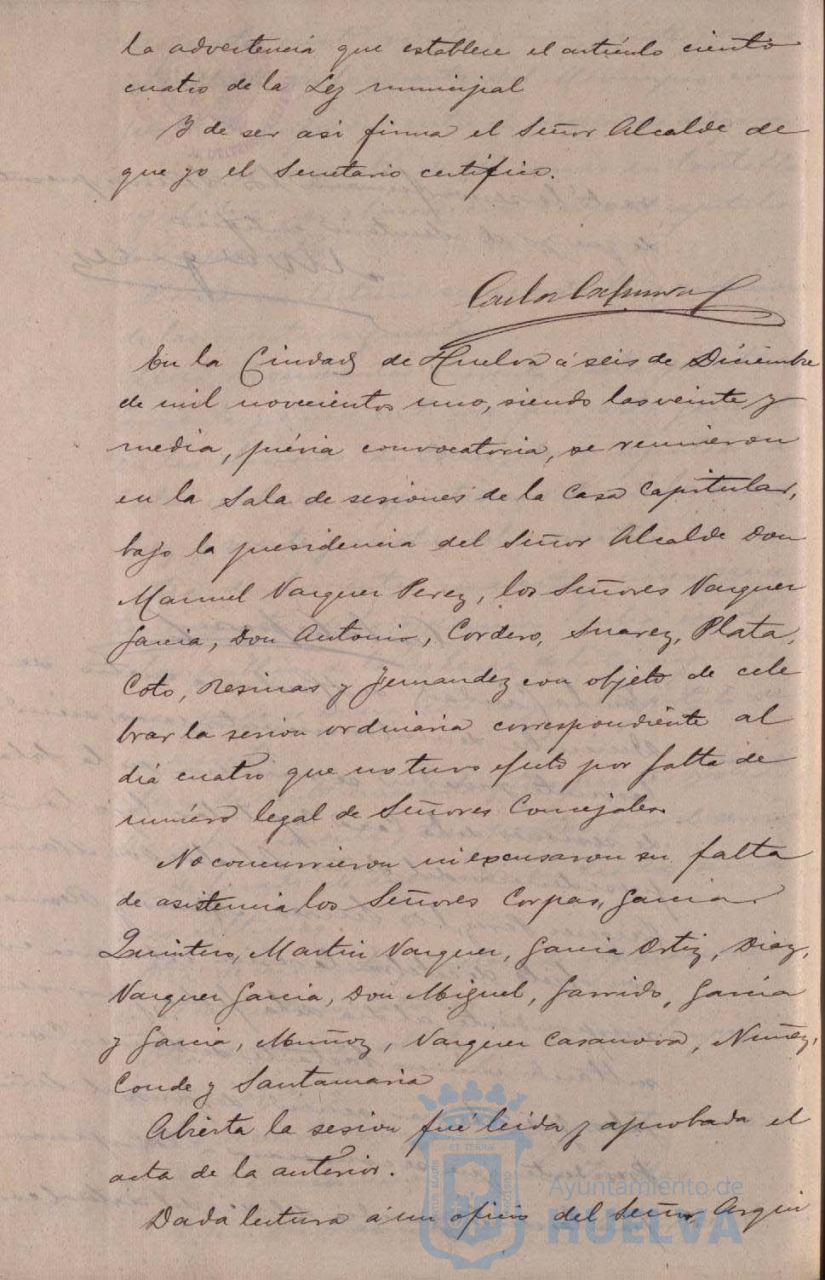 la advertencia que establece el artículo ciento
cuatro de la Ley municipal
Y de ser asi firma el Señor Alcalde de
que yo el Secretario certifico.
En la Ciudad de Huelva á seis de Diciembre
de mil novecientos uno, siendo las veinte y
media, prévia convocatoria, se reunieron
en la Sala de sesiones de la Casa Capitular,
bajo la presidencia del Señor Alcalde Don
Manuel Vazquez Perez, los Señores Vazquez
Garcia, Don Antonio, Cordero, Suarez, Plata,
Coto, Resinas y Fernandez con objeto de cele
brar la sesion ordinaria correspondiente al
dia cuatro que no tuvo efecto por falta de
número legal de Señores Concejales.
No concurrieron ni excusaron su falta
de asistencia los Señores Corpas, Garcia
Quintero, Martin Vazquez, Garcia Ortiz, Diaz,
Vazquez Garcia, Don Miguel, Garrido, Garcia
y Garcia, Muñoz, Vazquez Casanova, Nuñez,
Conde y Santamaria
Abierta la sesion fué leida y aprobada el
acta de la anterior.
Dada lectura á un oficio del Señor Arqui
Ayuntamiento de
HUELVA